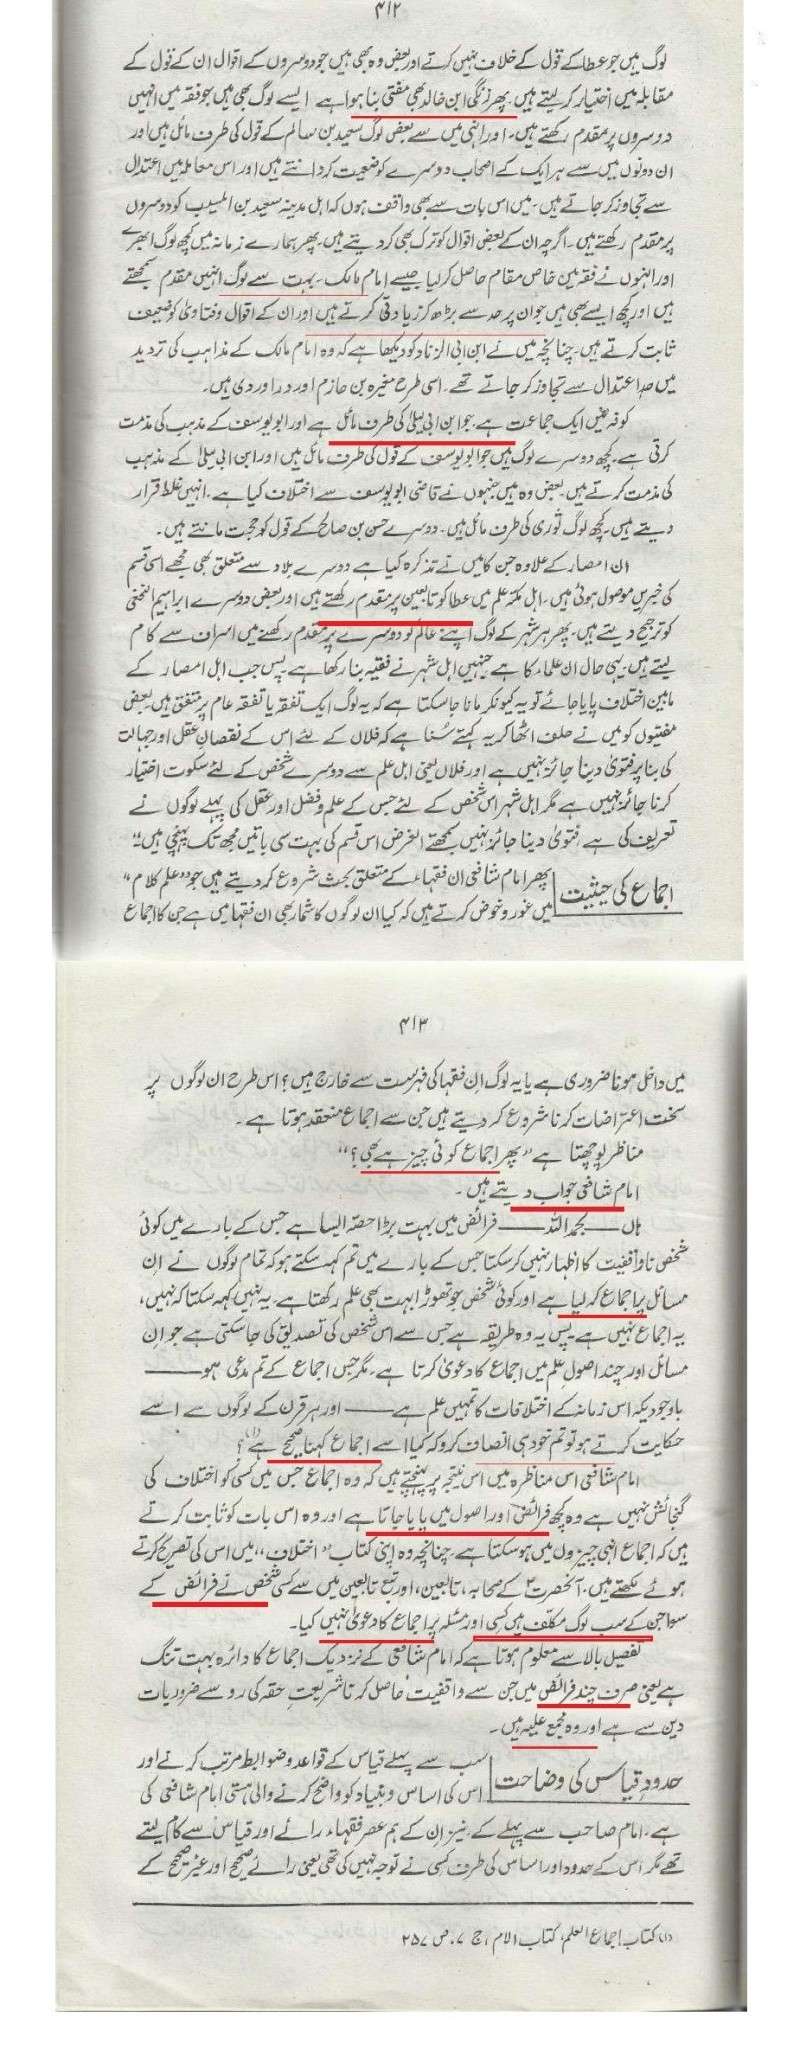 ۴۱۲
لوگ ہیں جو عطا کے قول کے خلاف نہیں کرتے اور بعض وہ بھی ہیں جو دوسروں کے اقوال ان کے قول کے
مقابلہ میں اختیار کر لیتے ہیں۔ پھر زنگی ابن خالد بھی مفتی بنا ہوا ہے ایسے لوگ بھی ہیں جو فقہ میں انہیں
دوسروں پر مقدم رکھتے ہیں۔ اور انہی میں سے بعض لوگ سعید بن سالم کے قول کی طرف مائل ہیں اور
ان دونوں میں سے ہر ایک کے اصحاب دوسرے کو ضعیف گردانتے ہیں اور اس معاملہ میں اعتدال
سے تجاوز کر جاتے ہیں۔ میں اس بات سے بھی واقف ہوں کہ اہل مدینہ سعید بن المسیب کو دوسروں
پر مقدم رکھتے ہیں۔ اگرچہ ان کے بعض اقوال کو ترک بھی کر دیتے ہیں۔ پھر ہمارے زمانہ میں کچھ لوگ ابھرے
اور انہوں نے فقہ میں خاص مقام حاصل کر لیا جیسے امام مالک۔ بہت سے لوگ انہیں مقدم سمجھتے
ہیں اور کچھ ایسے بھی ہیں جو ان پر حد سے بڑھ کر زیادتی کرتے ہیں اور ان کے اقوال وفتاویٰ کو ضعیف
ثابت کرتے ہیں۔ چنانچہ میں نے ابن ابی الزناد کو دیکھا ہے کہ وہ امام مالک کے مذاہب کی تردید
میں حد اعتدال سے تجاوز کر جاتے تھے۔ اسی طرح مغیرہ بن حازم اور دراوردی ہیں۔
کوفہ میں ایک جماعت ہے جو ابن ابی لیلیٰ کی طرف مائل ہے اور ابو یوسف کے مذہب کی مذمت
کرتی ہے۔ کچھ دوسرے لوگ ہیں جو ابو یوسف کے قول کی طرف مائل ہیں اور ابن ابی لیلیٰ کے مذہب
کی مذمت کرتے ہیں۔ بعض وہ ہیں جنہوں نے قاضی ابو یوسف سے اختلاف کیا ہے۔ انہیں غلط قرار
دیتے ہیں۔ کچھ لوگ ثوری کی طرف مائل ہیں۔ دوسرے حسن بن صالح کے قول کو حجت مانتے ہیں۔
ان امصار کے علاوہ جن کا میں نے تذکرہ کیا ہے دوسرے بلاد سے متعلق بھی مجھے اسی قسم
کی خبریں موصول ہوئی ہیں۔ اہل مکہ علم میں عطا کو تابعین پر مقدم رکھتے ہیں اور بعض دوسرے ابراہیم النخعی
کو ترجیح دیتے ہیں۔ پھر ہر شہر کے لوگ اپنے عالم کو دوسرے پر مقدم رکھنے میں اسراف سے کام
لیتے ہیں۔ یہی حال ان علماء کا ہے جنہیں اہل شہر نے فقیہ بنا رکھا ہے۔ پس جب اہل امصار کے
مابین اختلاف پایا جائے تو یہ کیونکر مانا جا سکتا ہے کہ یہ لوگ ایک تفقہ یا تفقہ عام پر متفق ہیں۔ بعض
مفتیوں کو میں نے حلف اٹھا کر یہ کہتے سُنا ہے کہ فلاں کے لئے اس کے نقصان عقل اور جہالت
کی بنا پر فتویٰ دینا جائز نہیں ہے اور فلاں یعنی اہل علم سے دوسرے شخص کے لئے سکوت اختیار
کرنا جائز نہیں ہے مگر اہل شہر اس شخص کے لئے جس کے علم وفضل اور عقل کی پہلے لوگوں نے
تعریف کی ہے فتویٰ دینا جائز نہیں سمجھتے الغرض اس قسم کی بہت سی باتیں مجھ تک پہنچی ہیں"
اجماع کی حیثیت
پھر امام شافعی ان فقہاء کے متعلق بحث شروع کر دیتے ہیں جو "علم کلام"
میں غور و خوض کرتے ہیں کہ کیا ان لوگوں کا شمار بھی ان فقہا میں ہے جن کا اجماع
۴۱۳
میں داخل ہونا ضروری ہے یا یہ لوگ ان فقہا کی فہرست سے خارج ہیں؟ اس طرح ان لوگوں پر
سخت اعتراضات کرنا شروع کر دیتے ہیں جن سے اجماع منعقد ہوتا ہے۔
مناظر پوچھتا ہے "پھر اجماع کوئی چیز ہے بھی؟"
امام شافعی جواب دیتے ہیں۔
ہاں — بحمد اللہ — فرائض میں بہت بڑا حصہ ایسا ہے جس کے بارے میں کوئی
شخص ناواقفیت کا اظہار نہیں کر سکتا جس کے بارے میں تم کہہ سکتے ہو کہ تمام لوگوں نے ان
مسائل پر اجماع کر لیا ہے اور کوئی شخص جو تھوڑا بہت بھی علم رکھتا ہے۔ یہ نہیں کہہ سکتا کہ نہیں،
یہ اجماع نہیں ہے۔ پس یہ وہ طریقہ ہے جس سے اس شخص کی تصدیق کی جا سکتی ہے جو ان
مسائل اور چند اصول علم میں اجماع کا دعویٰ کرتا ہے۔ مگر جس اجماع کے تم مدعی ہو —
باوجودیکہ اس زمانہ کے اختلافات کا تمہیں علم ہے — اور ہر قرن کے لوگوں سے اسے
حکایت کرتے ہو تو تم خود ہی انصاف کرو کہ کیا اسے اجماع کہنا صحیح ہے (۱)؟
امام شافعی اس مناظرہ میں اس نتیجہ پر پہنچتے ہیں کہ وہ اجماع جس میں کسی کو اختلاف کی
گنجائش نہیں ہے وہ کچھ فرائض اور اصول میں پایا جاتا ہے اور وہ اس بات کو ثابت کرتے
ہیں کہ اجماع انہی چیزوں میں ہو سکتا ہے۔ چنانچہ وہ اپنی کتاب "اختلاف" میں اس کی تصریح کرتے
ہوئے لکھتے ہیں۔ آنحضرت ؐ کے صحابہ، تابعین، اور تبع تابعین میں سے کسی شخص نے فرائض کے
سوا جن کے سب لوگ مکلف ہیں کسی اور مسئلہ پر اجماع کا دعویٰ نہیں کیا۔
تفصیل بالا سے معلوم ہوتا ہے کہ امام شافعی کے نزدیک اجماع کا دائرہ بہت تنگ
ہے یعنی صرف چند فرائض میں جن سے واقفیت حاصل کرنا شریعت حقہ کی رو سے ضروریات
دین سے ہے اور وہ مجمع علیہ ہیں۔
حدود قیاس کی وضاحت
سب سے پہلے قیاس کے قواعد و ضوابط مرتب کرنے اور
اس کی اساس و بنیاد کو واضح کرنے والی ہستی امام شافعی کی
ہے۔ امام صاحب سے پہلے کے۔ نیز ان کے ہم عصر فقہاء رائے اور قیاس سے کام لیتے
تھے مگر اس کے حدود اور اساس کی طرف کسی نے توجہ نہیں کی تھی یعنی رائے صحیح اور غیر صحیح کے
(۱) کتاب اجماع العلم، کتاب الام، ج ۷۔ ص ۲۵۷